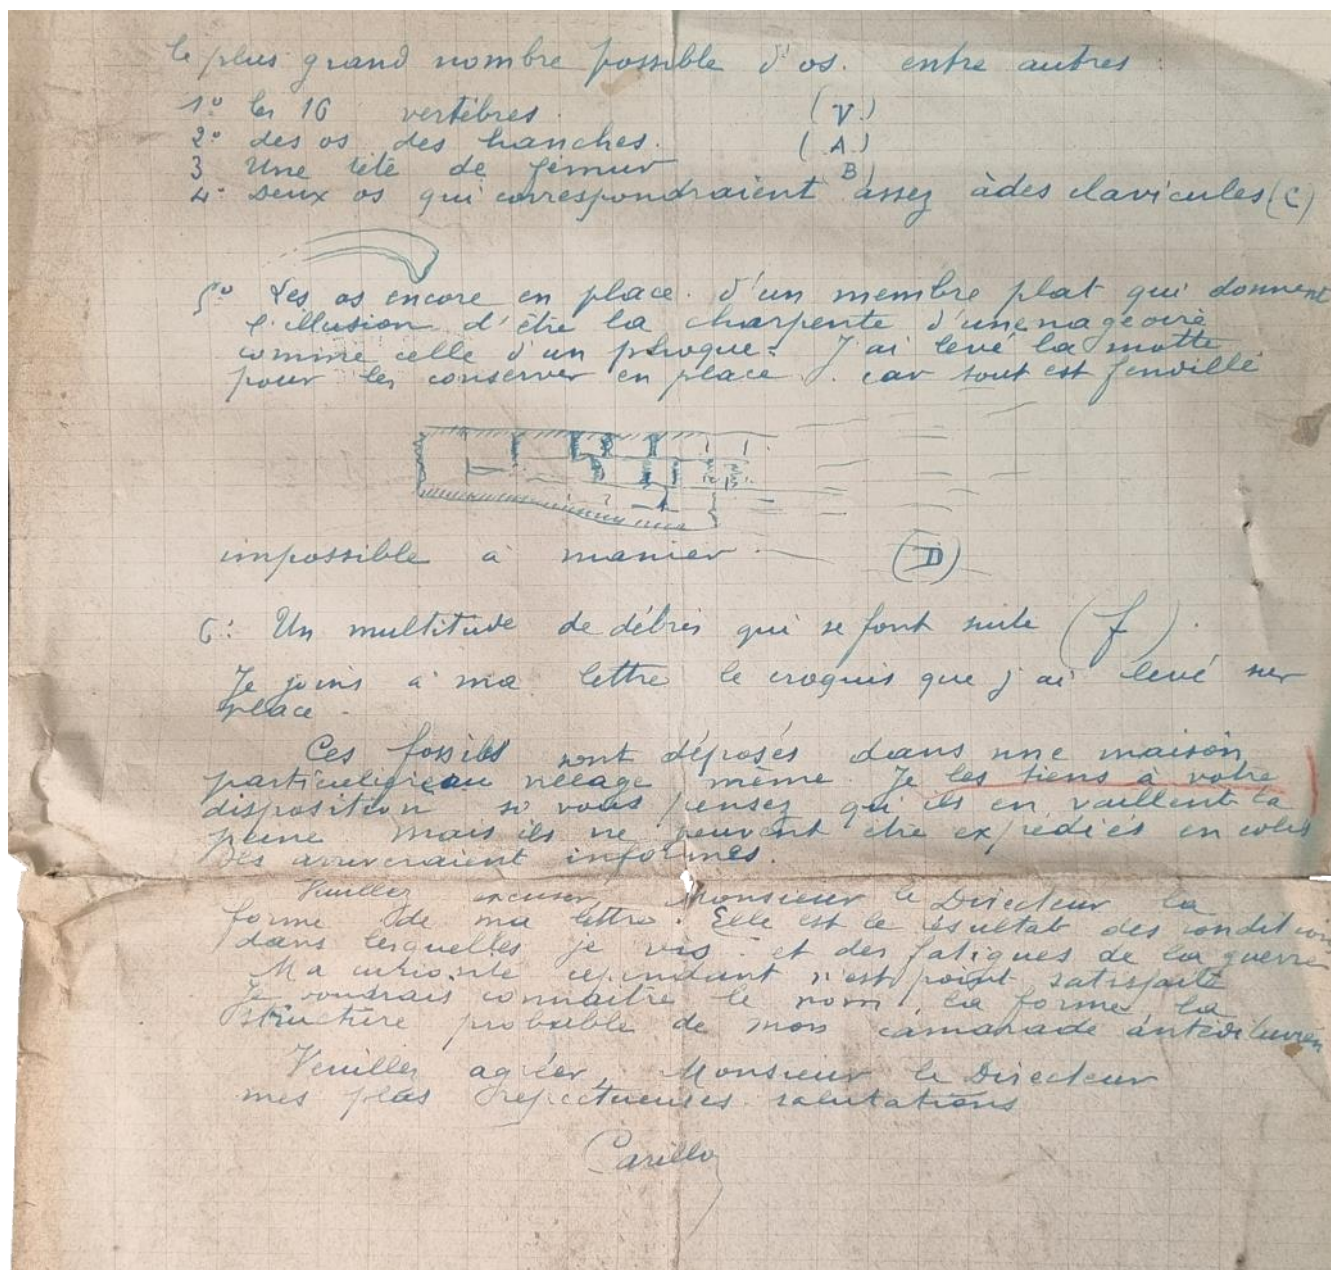 le plus grand nombre possible d'os. entre autres :
1º les 16 vertèbres. (V.)
2º des os des hanches. (A.)
3 Une tête de fémur B)
4º Deux os qui correspondraient assez àdes clavicules (C)
5º Les os encore en place. d'un membre plat qui donnent
l'illusion d'être la charpente d'une nageoire
comme celle d'un phoque. J'ai levé la motte
pour les conserver en place. car tout est feuillé
impossible à manier. (D)
6º Un multitude de débris qui se font suite (f).
Je joins à ma lettre le croquis que j'ai levé sur
place.
Ces fossiles sont déposés dans une maison
au village même. Je les tiens à votre
disposition si vous pensez qu'ils en vaillent la
peine mais ils ne peuvent être expédiés en colis
Ils arriveraient informes.
Veuillez excuser, Monsieur le Directeur la
forme de ma lettre. Elle est le résultat des condition
dans lesquelles je vis. et des fatigues de la guerre
Ma curiosité cependant n'est point satisfaite
Je voudrais connaître le nom, la forme la
structure probable de mon camarade antédiluvien
Veuillez agréer, Monsieur le Directeur
mes plus respectueuses salutations